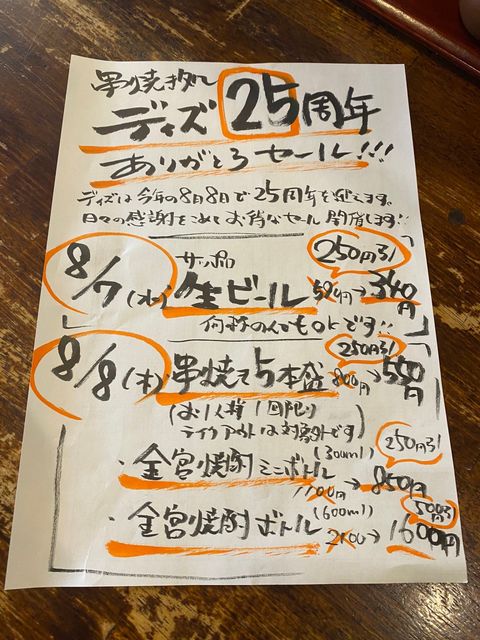 串焼き処
ディズ 25周年
ありがとうセール!!!
ディズは今年の8月8日で25周年を迎えます。
日々の感謝をこめてお得なセール開催します!!
8/7(水) サッポロ 生ビール 250円引
590円→340円
何杯のんでもokです!!
8/8(木) 串焼き5本盛 250円引
800円→550円
(お1人様1回限り
テイクアウトは対象外です)
・金宮焼酎ミニボトル(300ml) 250円引
1100円→850円
・金宮焼酎ボトル(600ml) 500円引
2100→1600円